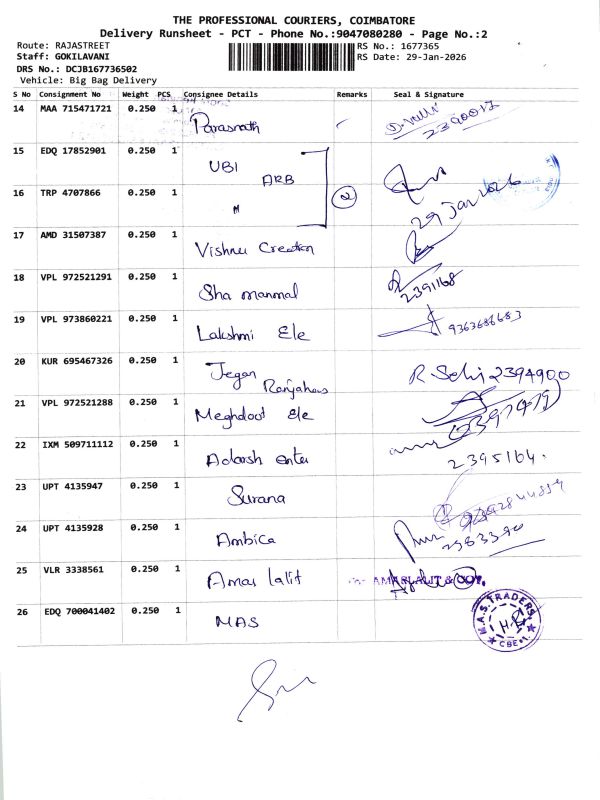 THE PROFESSIONAL COURIERS, COIMBATORE
Delivery Runsheet - PCT - Phone No.:9047080280 - Page No.:2
Route: RAJASTREET
RS No.: 1677365
Staff: GOKILAVANI
RS Date: 29-Jan-2026
DRS No.: DCJB167736502
Vehicle: Big Bag Delivery
S No Consignment No Weight PCS Consignee Details Remarks Seal & Signature
14 MAA 715471721 0.250 1 Parasnath 2390017
15 EDQ 17852901 0.250 1 UBI ARB
16 TRP 4707866 0.250 1 " 2 29 Jan 2026
17 AMD 31507387 0.250 1 Vishnu Creation
18 VPL 972521291 0.250 1 Sha manmal 2391168
19 VPL 973860221 0.250 1 Lakshmi Ele 9363686683
20 KUR 695467326 0.250 1 Jegan R 2394900
21 VPL 972521288 0.250 1 Meghdoot Ele
22 IXM 509711112 0.250 1 Adarsh enter 2395164.
23 UPT 4135947 0.250 1 Surana
24 UPT 4135928 0.250 1 Ambica
25 VLR 3338561 0.250 1 Amar lalit AMAR LALIT & COY.
26 EDQ 700041402 0.250 1 MAS M.A.S. TRADERS CBE